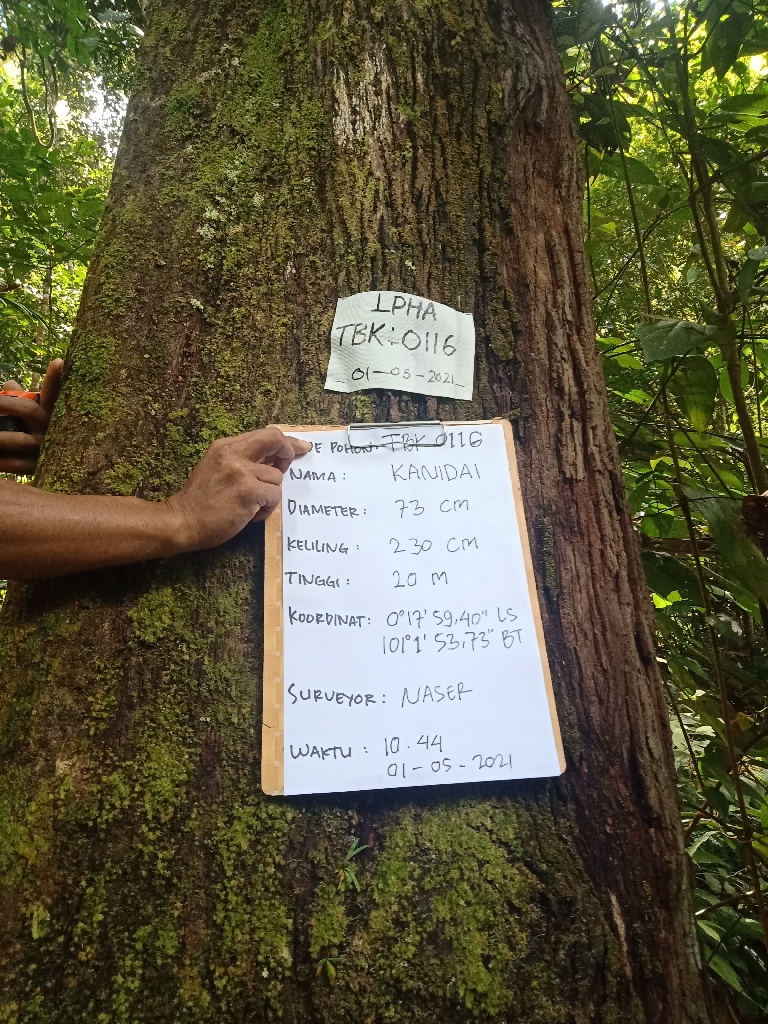 LPHA
TBK:0116
01-05-2021
DE POHON: TBK 0116
NAMA : KANIDAI
DIAMETER : 73 CM
KELILING : 230 CM
TINGGI : 20 M
KOORDINAT : 0°17'59,40" LS
101°1'53,73" BT
SURVEYOR : NASER
WAKTU : 10.44
01-05-2021